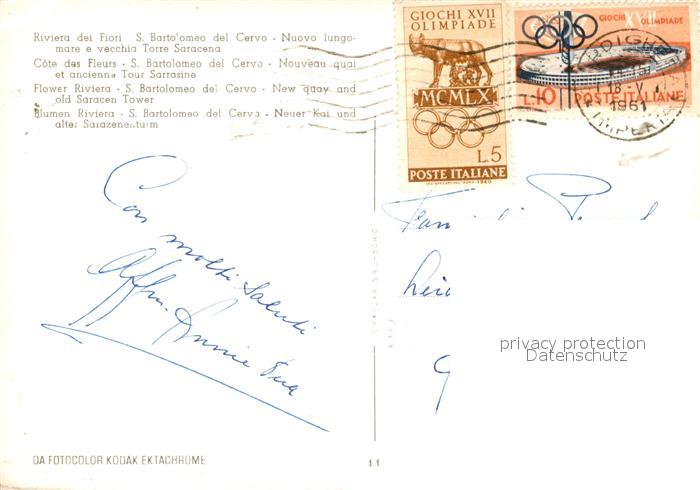 Riviera dei Fiori S. Bartolomeo del Cervo - Nuovo lungo-
mare e vecchia Torre Saracena
Côte des Fleurs - S. Bartolomeo del Cervo - Nouveau quai
et ancienne Tour Sarrasine
Flower Riviera - S. Bartolomeo del Cervo - New quay and
old Saracen Tower
Blumen Riviera - S. Bartolomeo del Cervo - Neuer Kai und
alter Sarazenenturm
GIOCHI XVII
OLIMPIADE
MCMLX
L.5
POSTE ITALIANE
GIOCHI XVII OLIMPIADE
L.10 POSTE ITALIANE
18-V
1961
Con
molti saluti
Affm. Annie
privacy protection
Datenschutz
DA FOTOCOLOR KODAK EKTACHROME
11